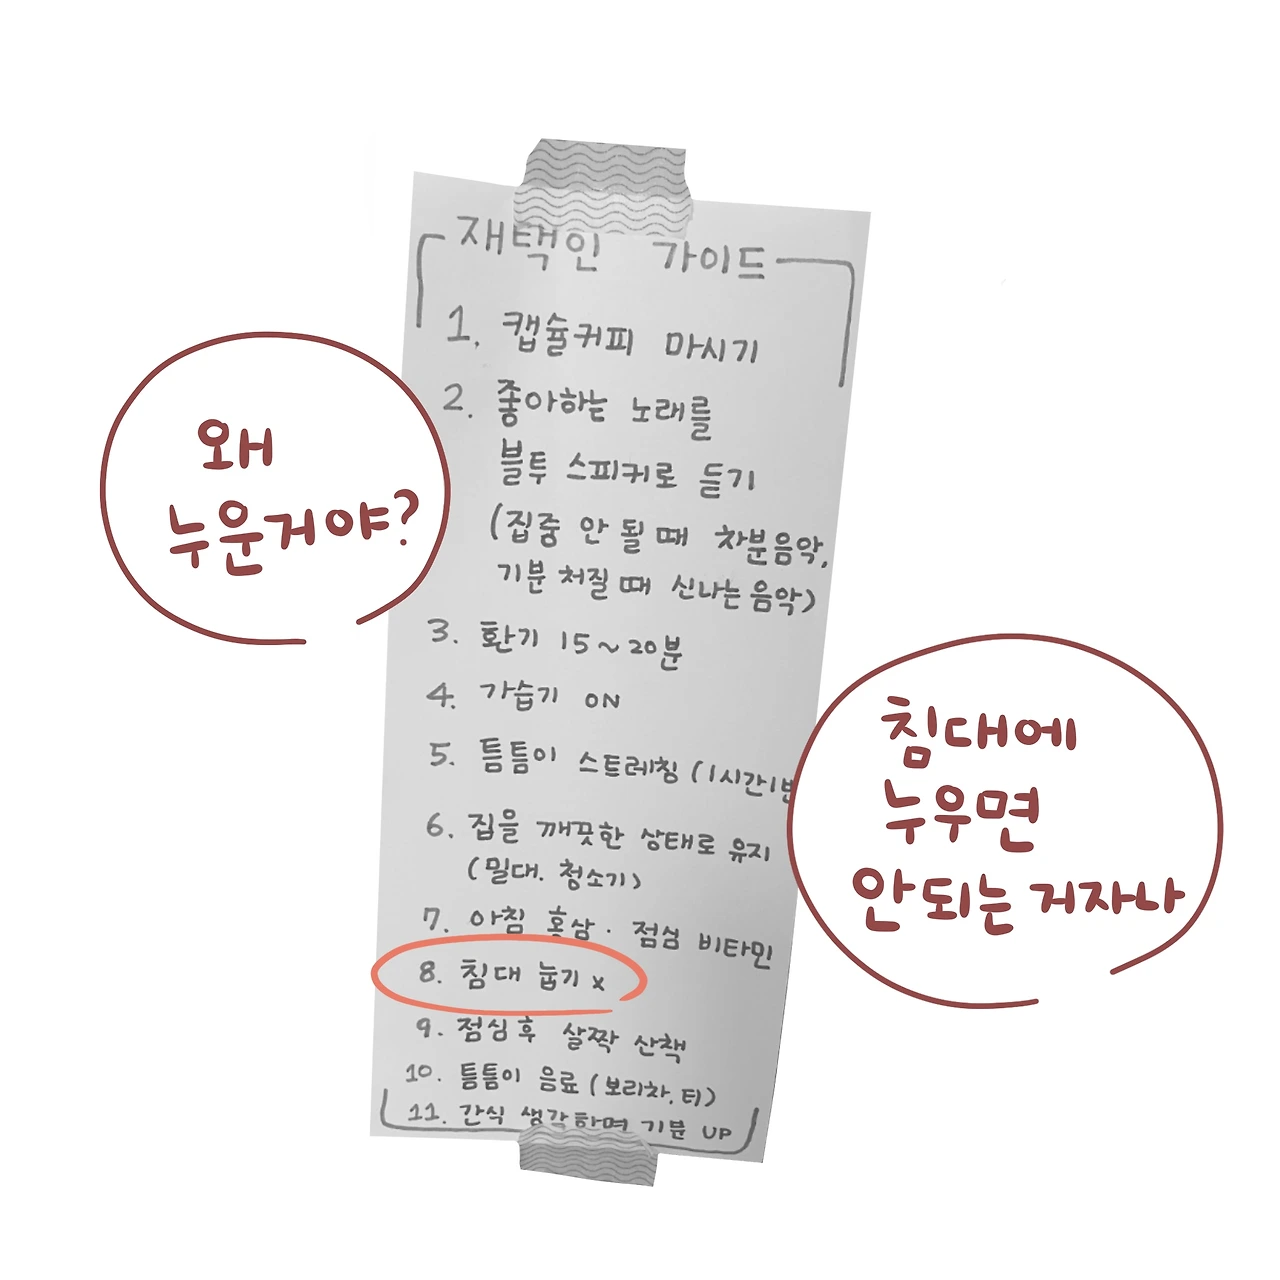 재택인 가이드
1. 캡슐커피 마시기
2. 좋아하는 노래를
블투 스피커로 듣기
(집중 안 될 때 차분음악,
기분 처질 때 신나는 음악)
3. 환기 15~20분
4. 가습기 ON
5. 틈틈이 스트레칭 (1시간1분
6. 집을 깨끗한 상태로 유지
(밀대. 청소기)
7. 아침 홍삼 · 점심 비타민
8. 침대 눕기 x
9. 점심후 살짝 산책
10. 틈틈이 음료 (보리차, 티)
11. 간식 생각하며 기분 UP
왜
누운거야?
침대에
누우면
안되는거자나